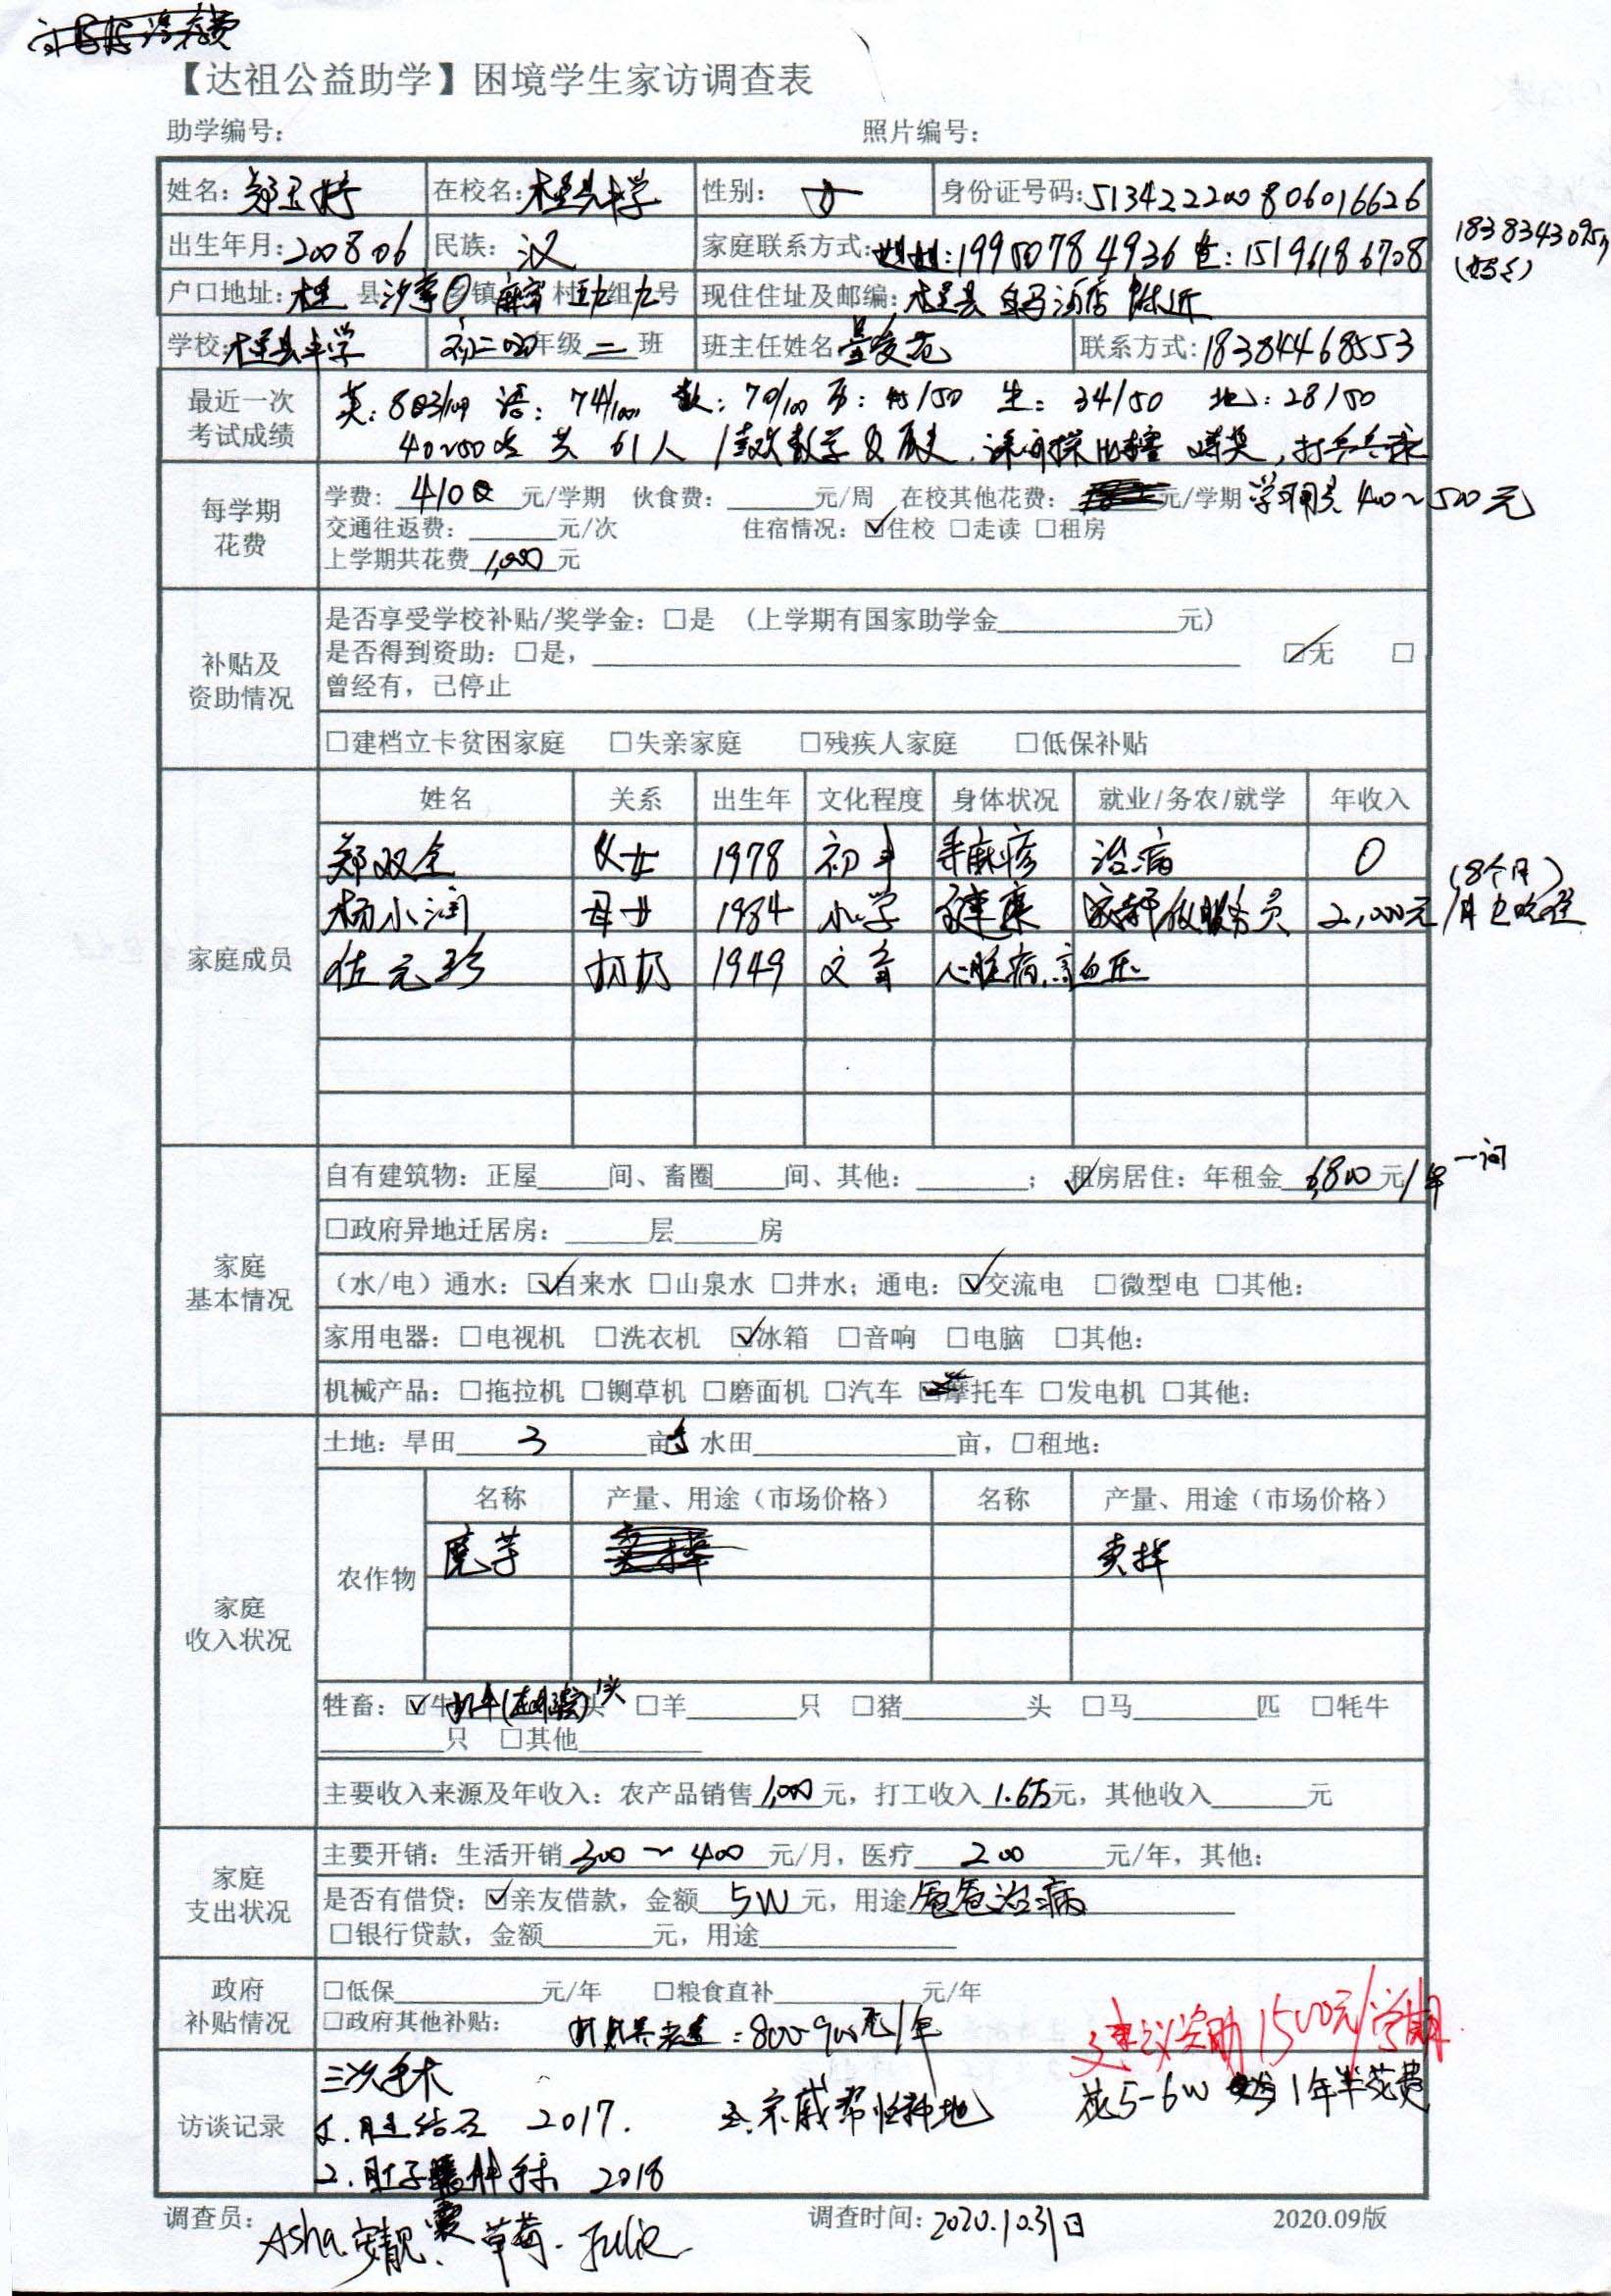 【达祖公益助学】困境学生家访调查表
助学编号: 照片编号:
姓名: 郑玉婷 在校名: 木里县中学 性别: 女 身份证号码: 513422200806016626
出生年月: 200806 民族: 汉 家庭联系方式: 姐姐: 19950784936 爸: 15196186708
18383430957
(妈妈)
户口地址: 木里 县 沙湾 乡镇 村 组 九 号 现住住址及邮编: 木里县 白马酒店 附近
学校: 木里县中学 初二 年级 二 班 班主任姓名 联系方式: 18384468553
最近一次考试成绩
英: 83/100 语: 74/100 数: 70/100 历: 45/50 生: 34/50 地: 28/50
40~50名 共 61人 喜欢数学及历史, 课间操, 打乒乓球
每学期花费
学费: 410 元/学期 伙食费: 元/周 在校其他花费: 元/学期 学习用具 400~500元
交通往返费: 元/次 住宿情况: ☑住校 □走读 □租房
上学期共花费 1,000 元
补贴及资助情况
是否享受学校补贴/奖学金: □是 (上学期有国家助学金 元)
是否得到资助: □是, ☑无 □
曾经有, 已停止
□建档立卡贫困家庭 □失亲家庭 □残疾人家庭 □低保补贴
家庭成员
姓名 关系 出生年 文化程度 身体状况 就业/务农/就学 年收入
郑双全 父女 1978 初中 治病 0
杨小润 母女 1984 小学 健康 做服务员 2,000元/月 包吃住 (8个月)
伍元珍 奶奶 1949 文盲 心脏病,高血压
家庭基本情况
自有建筑物: 正屋 间、畜圈 间、其他: ; ☑租房居住: 年租金 6,800 元/年 一间
□政府异地迁居房: 层 房
(水/电) 通水: ☑自来水 □山泉水 □井水; 通电: ☑交流电 □微型电 □其他:
家用电器: □电视机 □洗衣机 ☑冰箱 □音响 □电脑 □其他:
机械产品: □拖拉机 □铡草机 □磨面机 □汽车 □摩托车 □发电机 □其他:
家庭收入状况
土地: 旱田 3 亩 水田 亩, □租地:
农作物
名称 产量、用途 (市场价格) 名称 产量、用途 (市场价格)
魔芋 卖掉
牲畜: ☑牛 1头 □羊 只 □猪 头 □马 匹 □牦牛
只 □其他
主要收入来源及年收入: 农产品销售 1,000 元, 打工收入 1.6万元, 其他收入 元
家庭支出状况
主要开销: 生活开销 300~400 元/月, 医疗 200 元/年, 其他:
是否有借贷: ☑亲友借款, 金额 5W 元, 用途 爸爸治病
□银行贷款, 金额 元, 用途
政府补贴情况
□低保 元/年 □粮食直补 元/年
□政府其他补贴: 800-900元/年
建议资助1500元/学期
访谈记录
三次手术
1. 胆结石 2017. 亲戚帮忙种地 花5-6W 1年半花费
2. 肚子 手术 2018
调查员: Asha. 安靓. 草莓. Julie 调查时间: 2020.10.31日 2020.09版